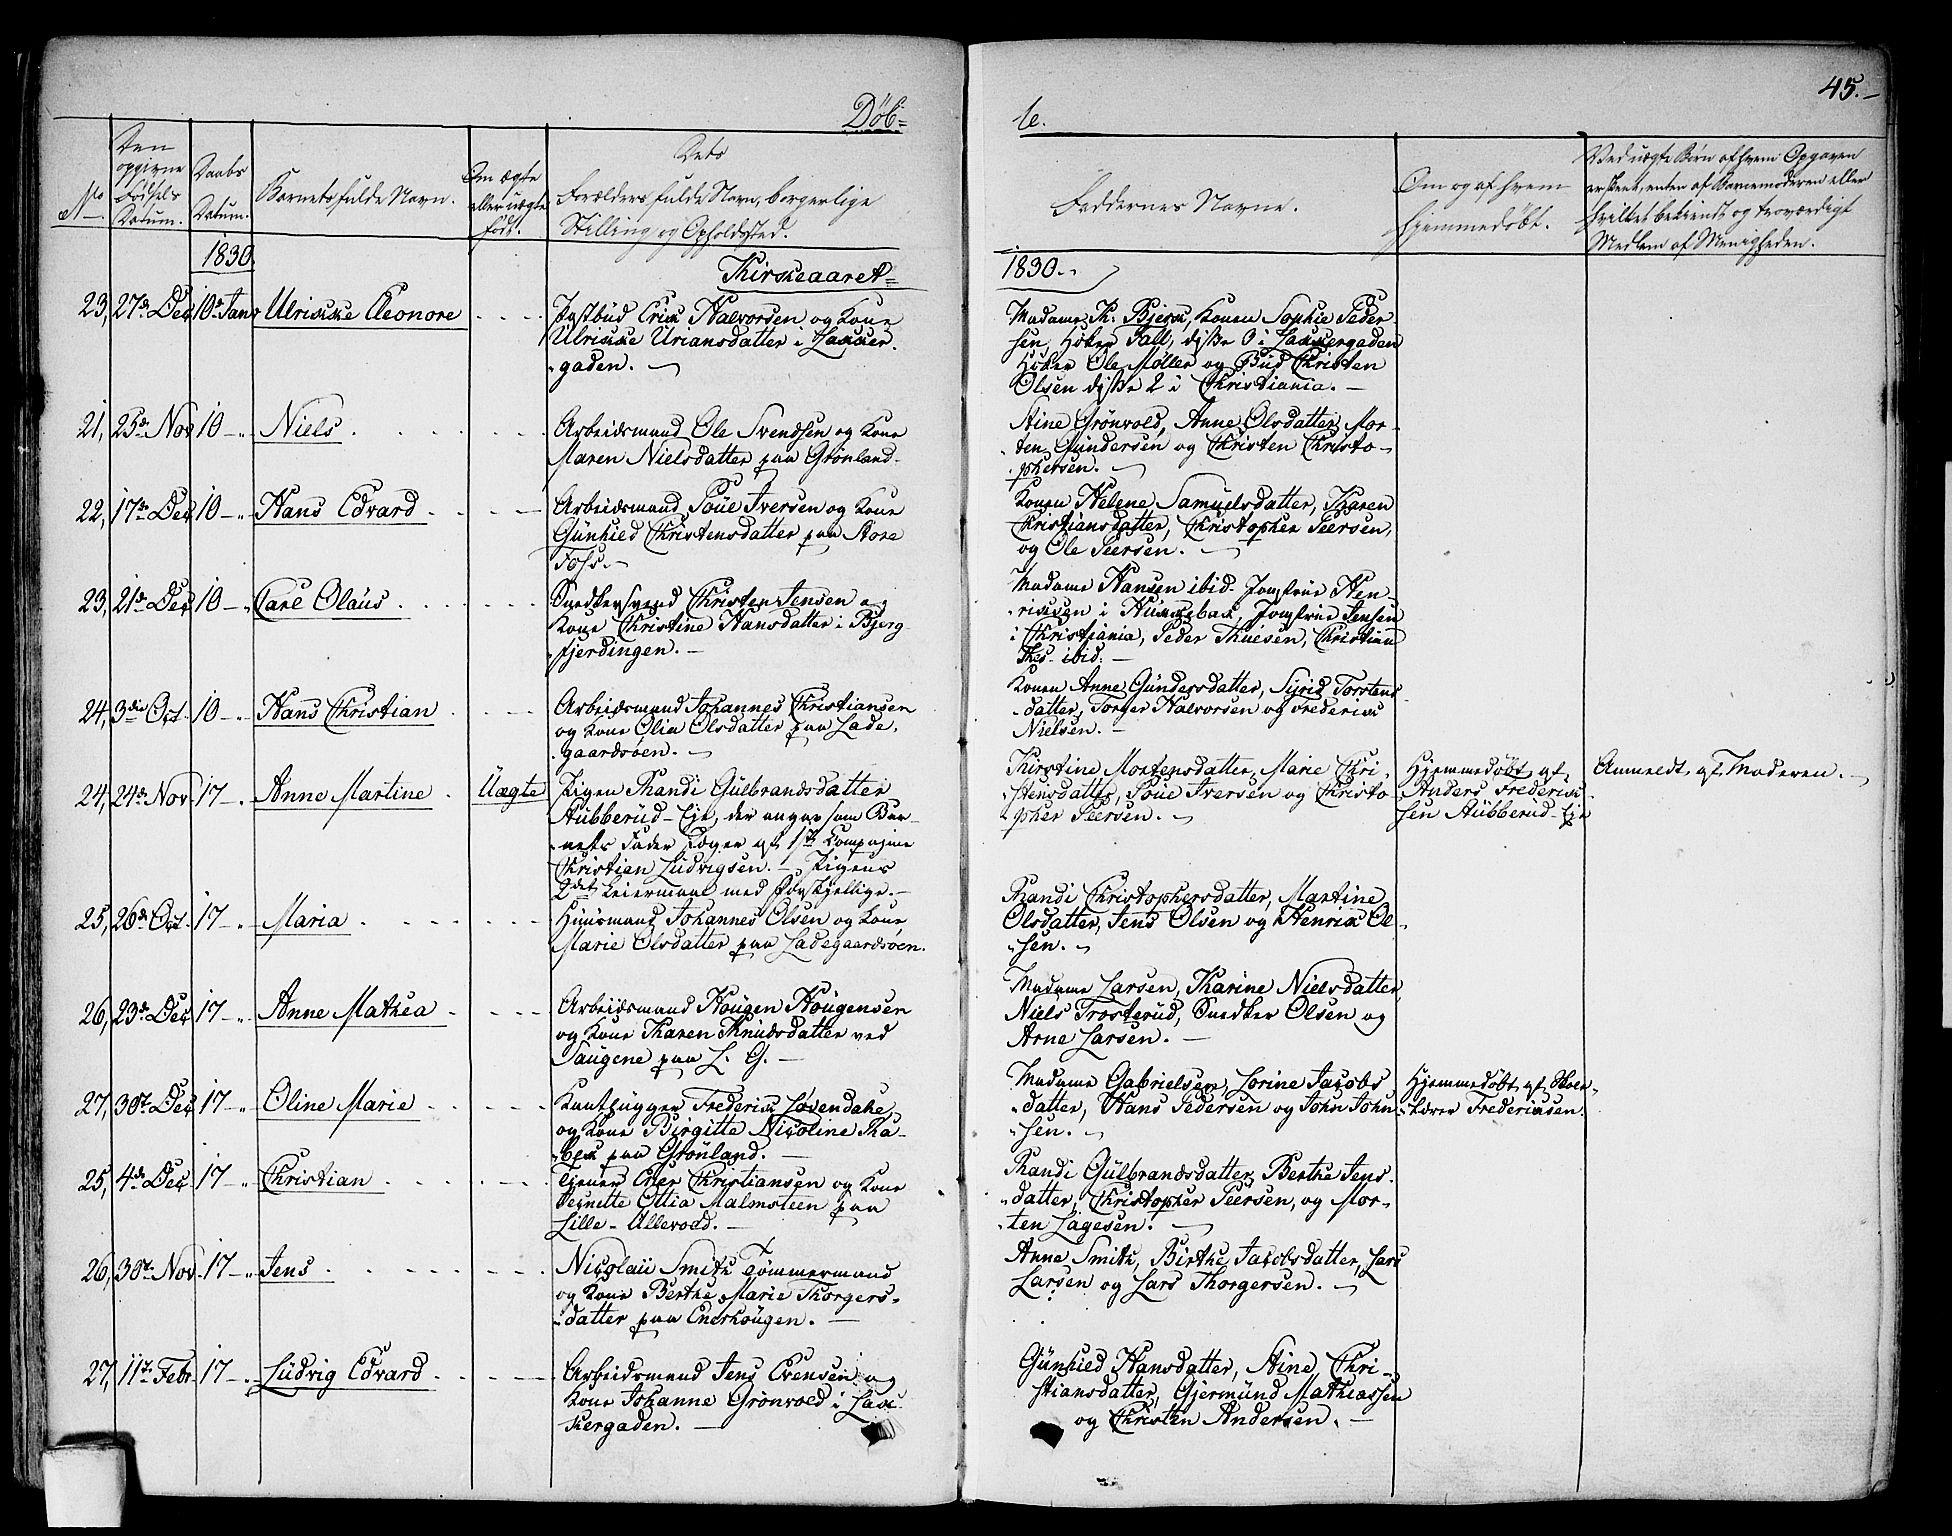 Døb-
te.
45.-
No
Den opgivne Fødsels Datum.
Daabs Datum.
Barnets fulde Navn.
Om ægte eller uægte født.
Dets Forældres fulde Navn, borgerlige Stilling og Opholdssted.
Faddernes Navne.
Om og af hvem hjemmedøbt.
Ved uægte Børn af hvem Opgaven er skeet, enten af Barnemoderen eller hvilket bekiendt og troværdigt Medlem af Menigheden.
1830.
Kirkeaaret-
1830.
23, 27de Dec 10de Janr Ulrikke Eleonore
Postbud Erik Halvorsen og Kone
Ulrikke Uriansdatter i Lakker-
gaden.
Madame K. Bjerk, Konen Sophie Peder-
sen, Høker Fall, disse 3 i Lakkergaden
Høker Ole Møller og Bud Christen
Olsen disse 2 i Christiania.
21, 25de Nov 10 - Niels
Arbeidsmand Ole Svendsen og Kone
Maren Nielsdatter paa Grønland-
Stine Grönvold, Anne Olsdatter, Mor-
ten Gundersen og Christen Christo-
phersen.
22, 17de Dec 10 - Hans Edvard
Arbeidsmand Poüe Iversen og Kone
Günhied Christensdatter paa Store
Foss.
Konen Helene Samuelsdatter, Karen
Christiansdatter, Christopher Peersen,
og Ole Peersen.
23, 21de Dec 10 - Carl Olaüs
Snedkersvend Christen Jensen og
Kone Christine Hansdatter i Bjerg-
fjerdingen.
Madame Hansen ibid. Jomfrue Hen-
riksen i Hukkebak, Jomfrue Jensen
i Christiania, Peder Thüesen, Christian
Thes. ibid.
24, 3die Oct. 10 - Hans Christian
Arbeidsmand Johannes Christiansen
og Kone Olia Olsdatter paa Lade-
gaardsøen.
Konen Anne Gündersdatter, Sigrid Torstens
datter, Torger Halvorsen og Frederik
Nielsen.
24, 24de Nov. 17 - Anne Martine Uægte
Pigen Randi Gülbrandsdatter
Aübberüd-Eje, der angav som Bar-
nets Fader Jæger af 1ste Compagnie
Christian Lüdvigsen. - Pigens
2det Leiermaal med Forskjellige.
Kirstine Mortensdatter, Marie Chri-
stensdatter, Poüe Iversen og Christo
pher Peersen.
Hjemmedøbt af
Anders Frederik
sen Aübberüd-Eje
Anmeldt af Moderen.
25, 26de Oct. 17 - Maria
Huusmand Johannes Olsen og Kone
Marie Olsdatter paa Ladegaardsøen.
Randi Christophersdatter, Martine
Olsdatter, Jens Olsen og Henrik Ol-
sen.
26, 23de Dec 17 - Anne Mathea
Arbeidsmand Haügen Haügensen
og Kone Karen Knudsdatter ved
Saügene paa L. G.
Madame Larsen, Karine Nielsdatter,
Niels Trosterüd, Snedker Olsen og
Arne Larsen.
27, 30te Dec 17 - Oline Marie
Kanthugger Frederik Lövendahl
og Kone Birgitte Nicoline Ra-
bek paa Grönland.
Madame Gabrielsen, Lorine Jacobs
datter, Hans Pedersen og John John-
sen.
Hjemmedøbt af Skole-
lærer Frederiksen.
25, 4de Dec 17 - Christian
Tjener Peer Christiansen og Kone
Jeanette Ottia Malmsteen paa
Lille-Ullevold.
Randi Gülbrandsdatter, Berthe Jens-
datter, Christopher Peersen, og Mor-
ten Lagesen.
26, 30te Nov. 17 - Jens
Nicolaii Smith Tømmermand
og Kone Berthe Marie Thorgers-
datter paa Enerhoügen.
Anne Smith, Birthe Jacobsdatter, Lars
Larsen og Lars Thorgersen.
27, 11te Febr. 17 - Lüdvig Edvard
Arbeidsmand Jens Evensen og
Kone Johanne Grönvold i Lak-
kergaden.
Günhied Hansdatter, Stine Chri-
stiansdatter, Gjermünd Mathiassen
og Christen Andersen.